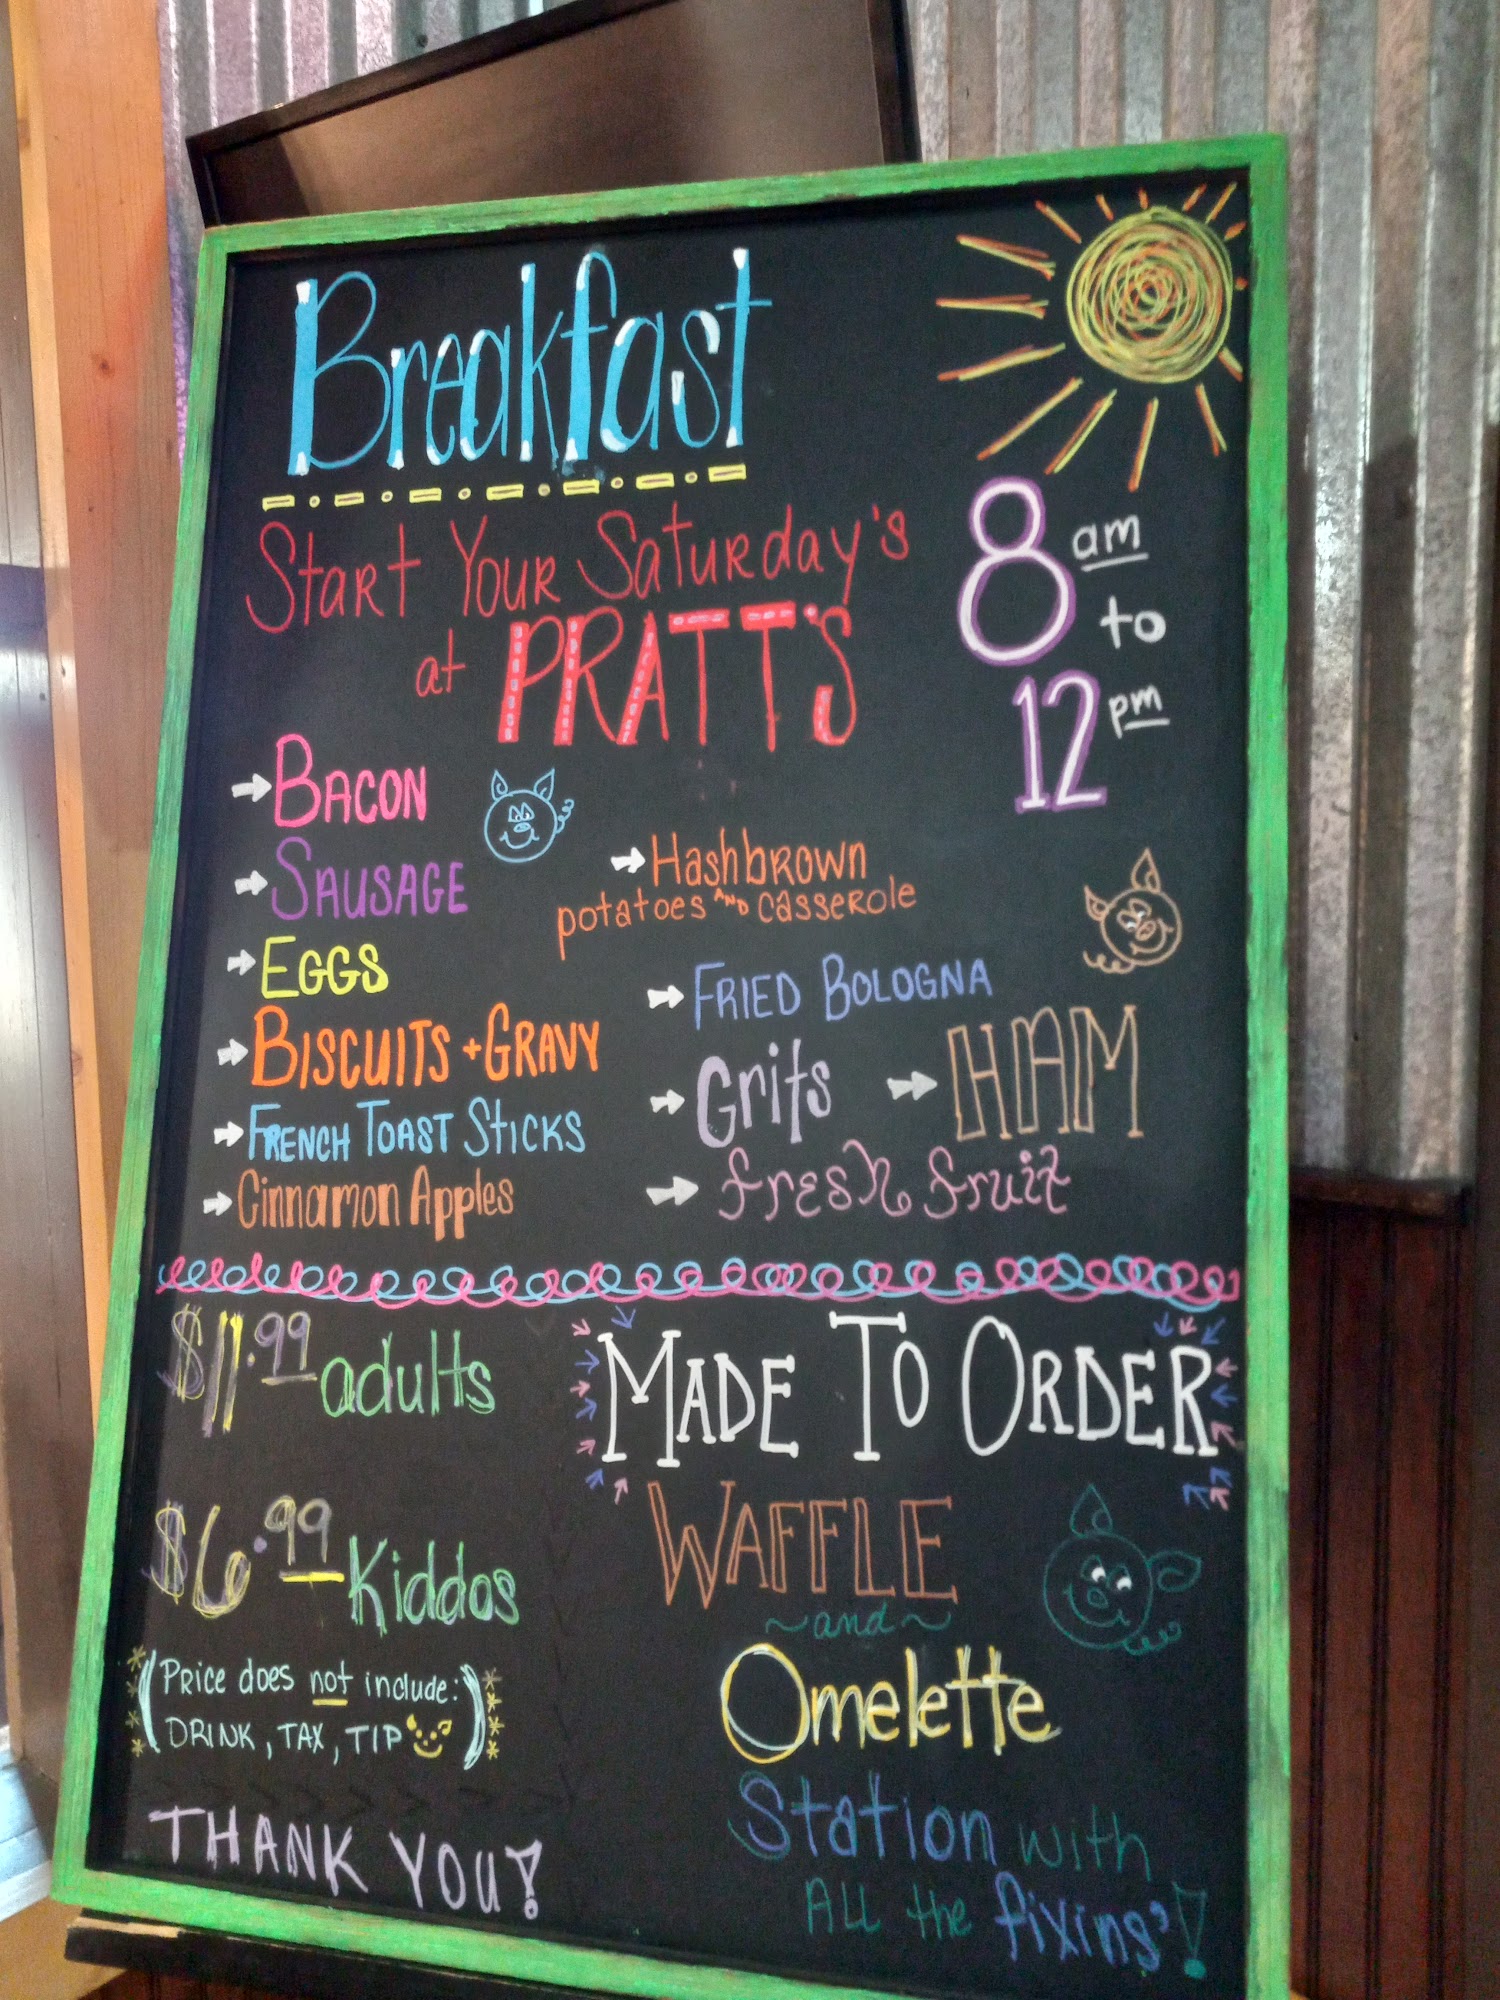 Breakfast
Start Your Saturday's
at PRATT'S
8 am
to
12 pm
BACON
SAUSAGE
EGGS
BISCUITS + GRAVY
FRENCH TOAST STICKS
Cinnamon Apples
Hashbrown
potatoes AND casserole
FRIED BOLOGNA
Grits
HAM
fresh fruit
$11.99 adults
$6.99 Kiddos
(Price does not include:
DRINK, TAX, TIP)
THANK YOU!
MADE TO ORDER
WAFFLE
~and~
Omelette
Station with
ALL the fixins'!